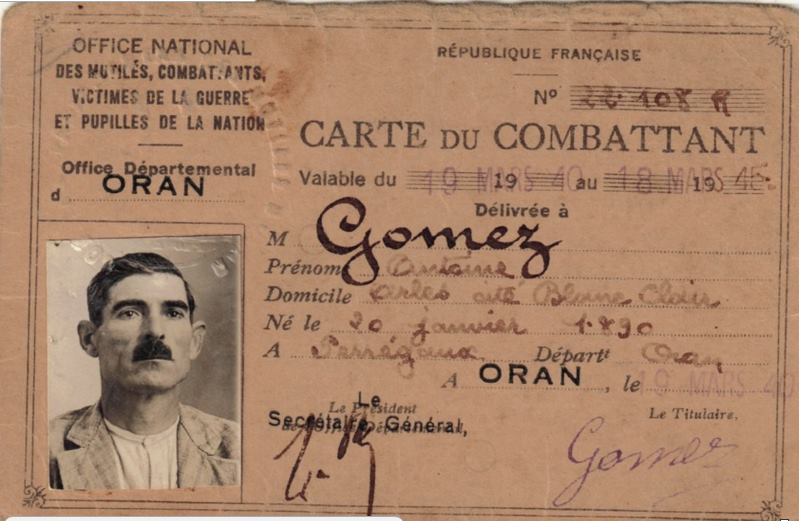 OFFICE NATIONAL
DES MUTILÉS, COMBATTANTS,
VICTIMES DE LA GUERRE
ET PUPILLES DE LA NATION
Office Départemental
d ORAN
RÉPUBLIQUE FRANÇAISE
Nº 22.108 R
CARTE DU COMBATTANT
Valable du 19 MARS 1940 au 18 MARS 1945
Délivrée à
M Gomez
Prénom Antoine
Domicile Arles cité Blanc
Né le 20 janvier 1890
A Perrégaux Départt Oran
A ORAN, le 19 MARS 40
Le Président
Le
Secrétaire Général,
Le Titulaire,
Gomez